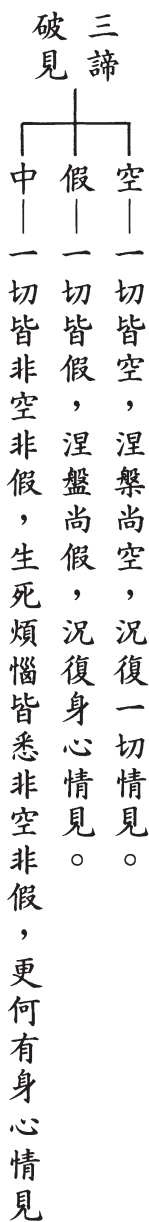 三諦
破見
空—一切皆空，涅槃尚空，況復一切情見。
假—一切皆假，涅盤尚假，況復身心情見。
中—一切皆非空非假，生死煩惱皆悉非空非假，更何有身心情見